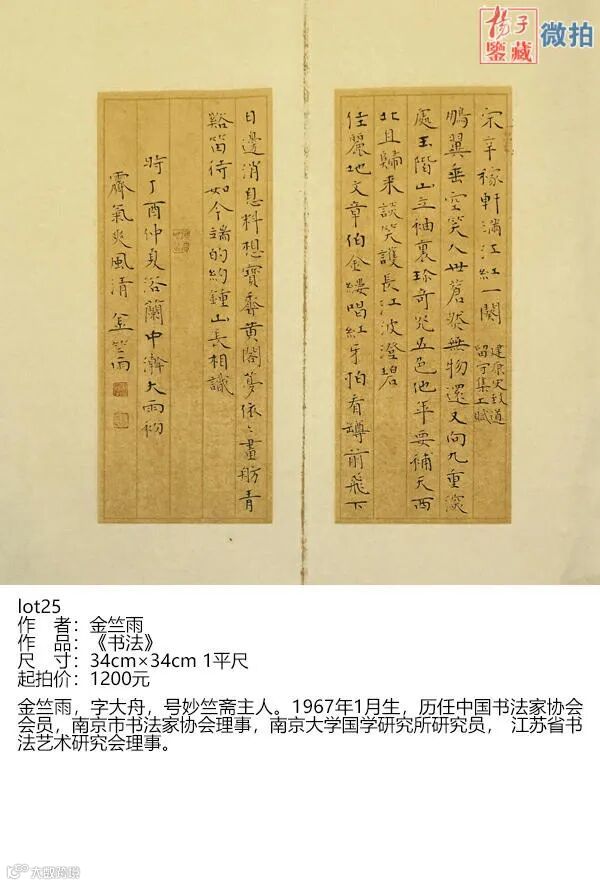 揚子
鑒藏
微拍
宋辛稼軒滿江紅一闋
建康史致道
留守集上賦
鵬翼垂空笑人世蒼然無物還又向九重深
處玉階山立袖裏珍奇光五色他年要補天西
北且歸来談笑護長江波澄碧
佳麗地文章伯金縷唱紅牙拍看罇前飛下
日邊消息料想寶香黄閣夢依〻畫舫青
谿笛待如今端的約鍾山長相識
時丁酉仲夏浴蘭中澣大雨初
霽氣爽風清 金竺雨
lot25
作 者：金竺雨
作 品：《书法》
尺 寸：34cm×34cm 1平尺
起拍价：1200元
金竺雨，字大舟，号妙竺斋主人。1967年1月生，历任中国书法家协会
会员，南京市书法家协会理事，南京大学国学研究所研究员， 江苏省书
法艺术研究会理事。